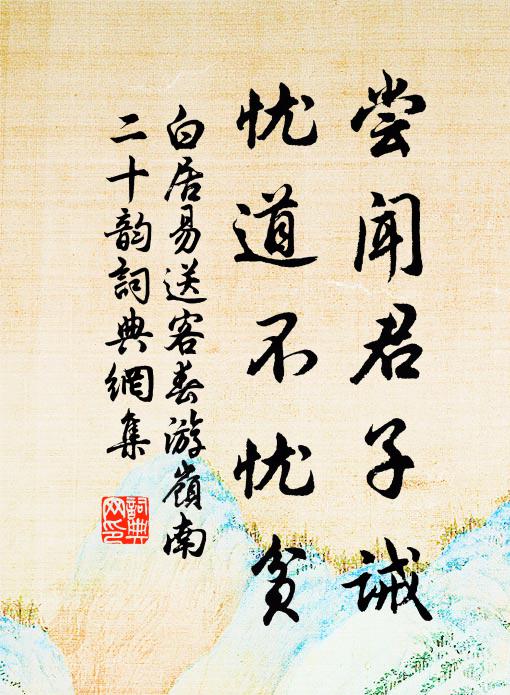 尝闻君子诫
忧道不忧贫
白居易送客春游嶺南
二十韵詞典網集
詞典
网印